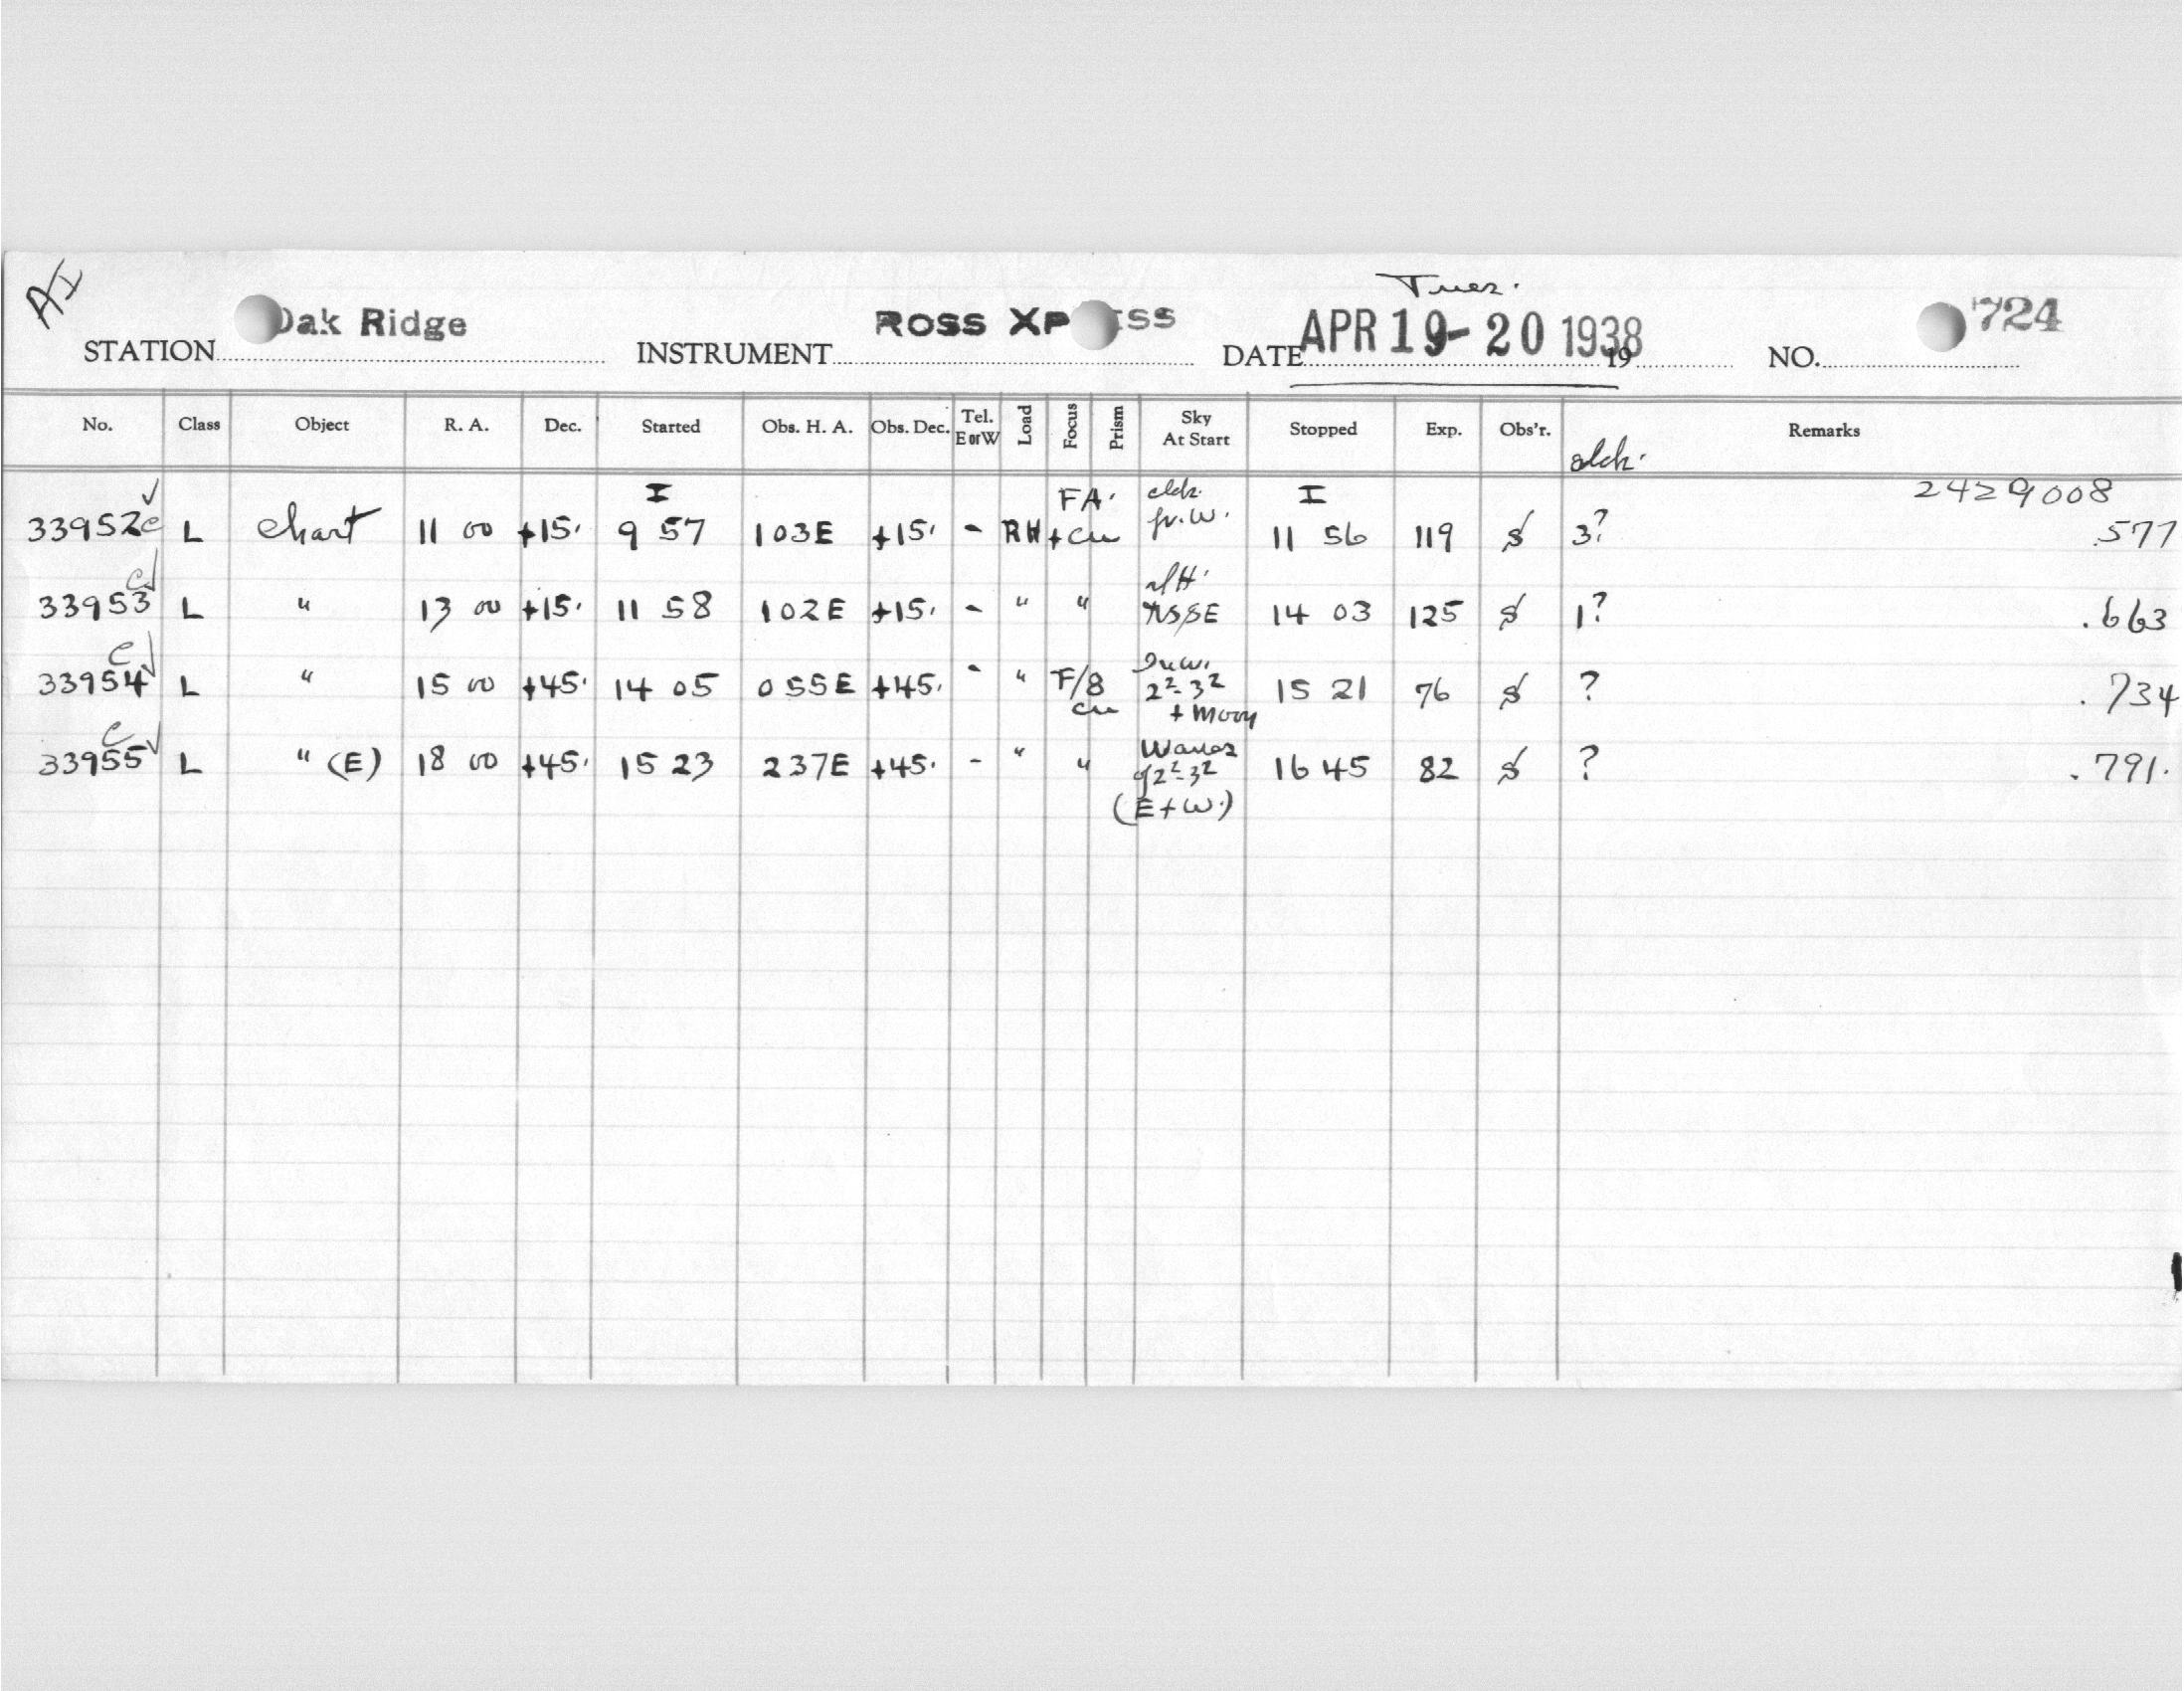 AI
Tues.
STATION Oak Ridge INSTRUMENT ROSS XP ESS DATE APR 19-20 1938 19 NO. 724
No. Class Object R. A. Dec. Started Obs. H. A. Obs. Dec. Tel. E or W Load Focus Prism Sky At Start Stopped Exp. Obs'r. Remarks
I FA. I 2429008
33952c ✓ L Chart 11 00 +15. 9 57 103E +15. - RH + cu fr. W. 11 56 119 S 3? .577
33953 c ✓ L " 13 00 +15. 11 58 102E +15. - " " 14 03 125 S 1? .663
33954 c ✓ L " 15 00 +45. 14 05 055E +45. - " F/8 cu 2²-3² + moon 15 21 76 S ? .734
33955 c ✓ L " (E) 18 00 +45. 15 23 237E +45. - " " Waves of 2²-3² (E+W.) 16 45 82 S ? .791.